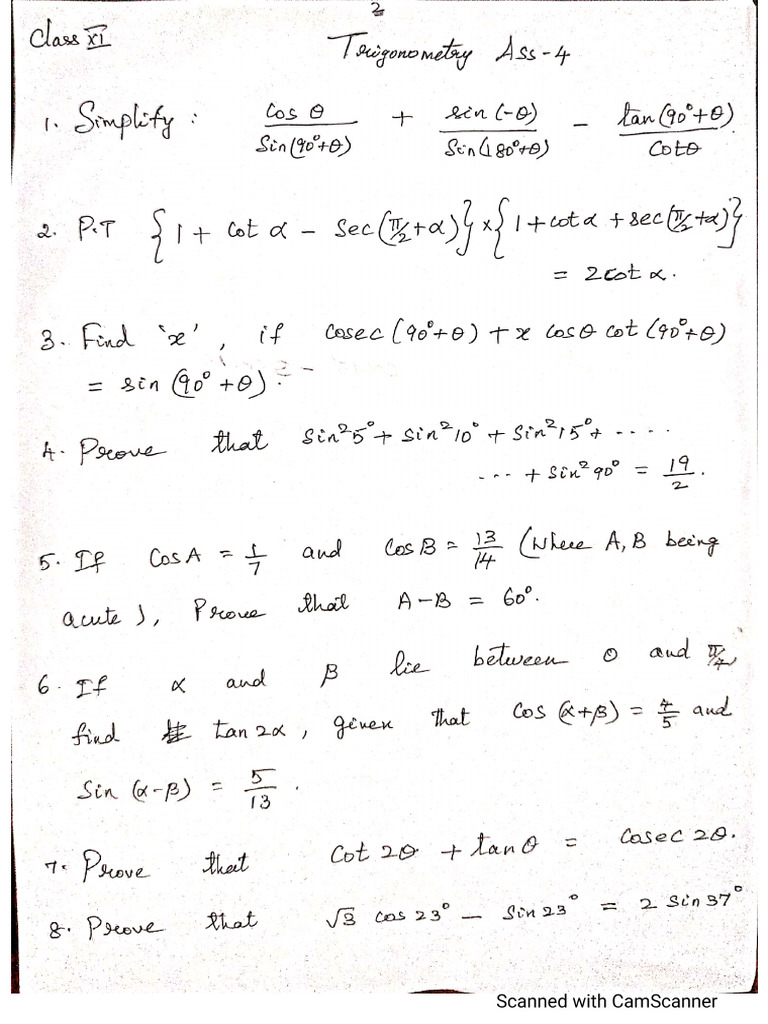 2
Class XI
Trigonometry Ass-4
1. Simplify : cos θ / sin(90°+θ) + sin(-θ) / sin(180°+θ) - tan(90°+θ) / cotθ
2. P.T {1 + cot α - sec(π/2+α)} × {1 + cot α + sec(π/2+α)}
= 2cot α.
3. Find 'x', if cosec(90°+θ) + x cosθ cot(90°+θ)
= sin(90°+θ).
4. Prove that sin²5° + sin²10° + sin²15° + ....
... + sin²90° = 19/2.
5. If cosA = 1/7 and cosB = 13/14 (where A, B being
acute), Prove that A-B = 60°.
6. If α and β lie between 0 and π/4,
find tan2α, given that cos(α+β) = 4/5 and
sin(α-β) = 5/13.
7. Prove that cot2θ + tanθ = cosec2θ.
8. Prove that √3 cos23° - sin23° = 2 sin37°
Scanned with CamScanner